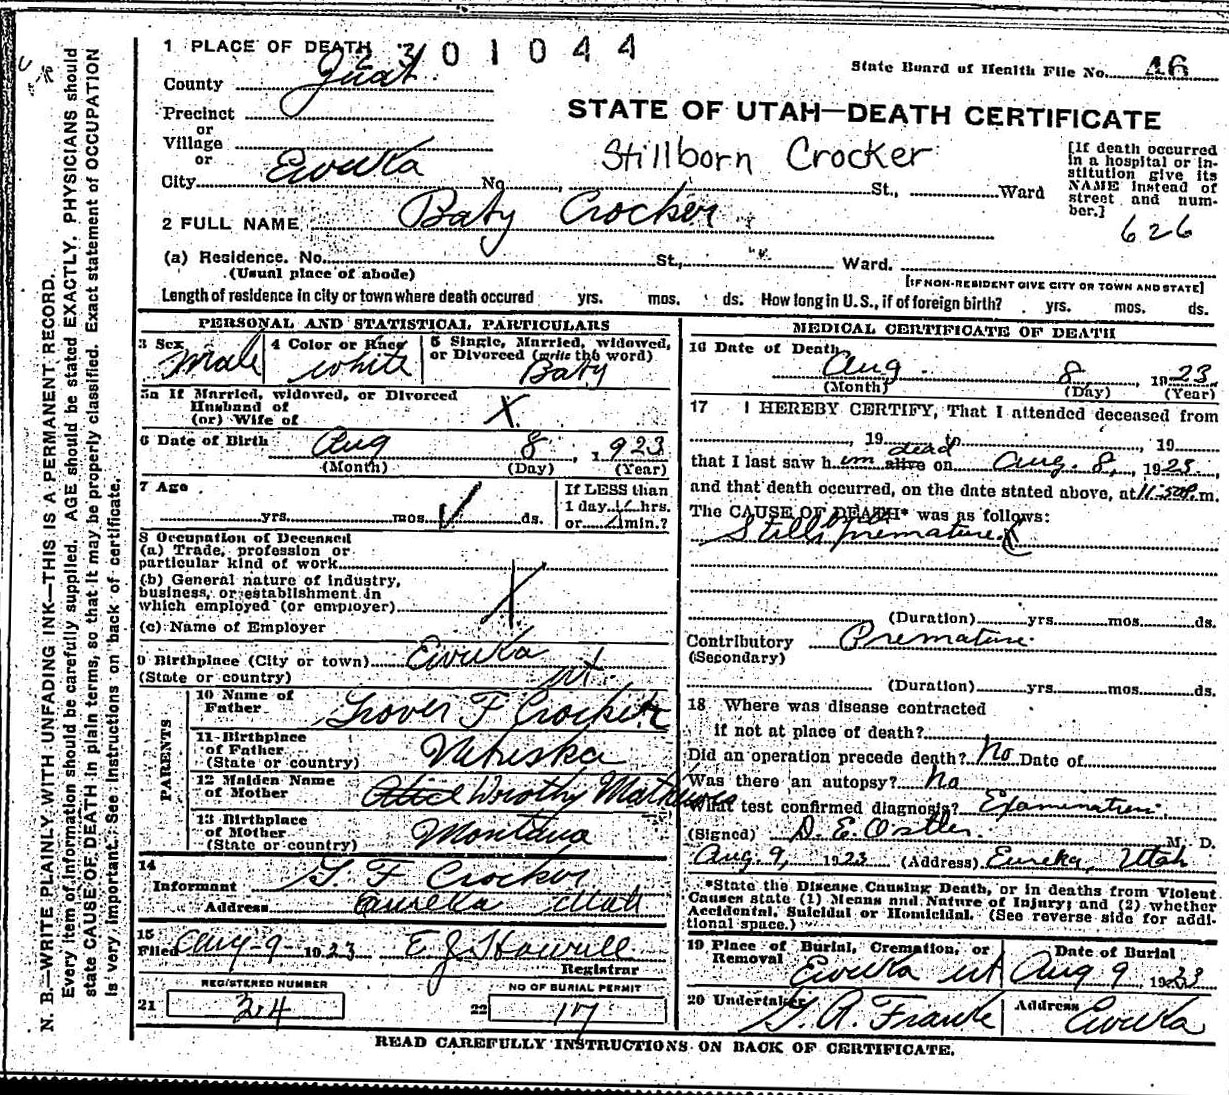 1 PLACE OF DEATH 2 3 0 1 0 4 4
State Board of Health File No. 46
County Juab
STATE OF UTAH—DEATH CERTIFICATE
Precinct
or
Village
or
City Eureka No. St., Ward
Stillborn Crocker
[If death occurred
in a hospital or in-
stitution give its
NAME instead of
street and num-
ber.]
626
2 FULL NAME Baby Crocker
(a) Residence. No. St., Ward.
(Usual place of abode)
[IF NON-RESIDENT GIVE CITY OR TOWN AND STATE]
Length of residence in city or town where death occured yrs. mos. ds. How long in U.S., if of foreign birth? yrs. mos. ds.
PERSONAL AND STATISTICAL PARTICULARS
3 Sex Male
4 Color or Race White
5 Single, Married, widowed,
or Divorced (write the word)
Baby
5a If Married, widowed, or Divorced
Husband of
(or) Wife of X
6 Date of Birth Aug 8, 1923
(Month) (Day) (Year)
7 Age
yrs. mos. ds.
If LESS than
1 day hrs.
or min.?
8 Occupation of Deceased
(a) Trade, profession or
particular kind of work
(b) General nature of industry,
business, or establishment in
which employed (or employer)
(c) Name of Employer
9 Birthplace (City or town) Eureka
(State or country) Ut
PARENTS
10 Name of
Father Grover F Crocker
11 Birthplace
of Father Nebraska
(State or country)
12 Maiden Name
of Mother Alice Dorothy Mathews
13 Birthplace
of Mother Montana
(State or country)
14
Informant G. F Crocker
Address Eureka Utah
15
Filed Aug-9-1923 E. J. Howell
Registrar
REGISTERED NUMBER
21 24
NO OF BURIAL PERMIT
22 17
MEDICAL CERTIFICATE OF DEATH
16 Date of Death
Aug. 8, 1923.
(Month) (Day) (Year)
17 I HEREBY CERTIFY, That I attended deceased from
, 19 , 19
dead
that I last saw him alive on Aug. 8, 1923,
and that death occurred, on the date stated above, at 11:50 P.m.
The CAUSE OF DEATH* was as follows:
Stillborn premature.
(Duration) yrs. mos. ds.
Contributory Premature.
(Secondary)
(Duration) yrs. mos. ds.
18 Where was disease contracted
if not at place of death?
Did an operation precede death? No Date of
Was there an autopsy? No
What test confirmed diagnosis? Examination.
(Signed) D. E. Ostler M. D.
Aug. 9, 1923 (Address) Eureka, Utah
*State the Disease Causing Death, or in deaths from Violent
Causes state (1) Means and Nature of Injury; and (2) whether
Accidental, Suicidal or Homicidal. (See reverse side for addi-
tional space.)
19 Place of Burial, Cremation, or
Removal Eureka Ut
Date of Burial
Aug 9, 1923
20 Undertaker G. A. Franke
Address Eureka
READ CAREFULLY INSTRUCTIONS ON BACK OF CERTIFICATE.
N. B.—WRITE PLAINLY WITH UNFADING INK—THIS IS A PERMANENT RECORD.
Every item of information should be carefully supplied. AGE should be stated EXACTLY. PHYSICIANS should
state CAUSE OF DEATH in plain terms, so that it may be properly classified. Exact statement of OCCUPATION
is very important. See instructions on back of certificate.